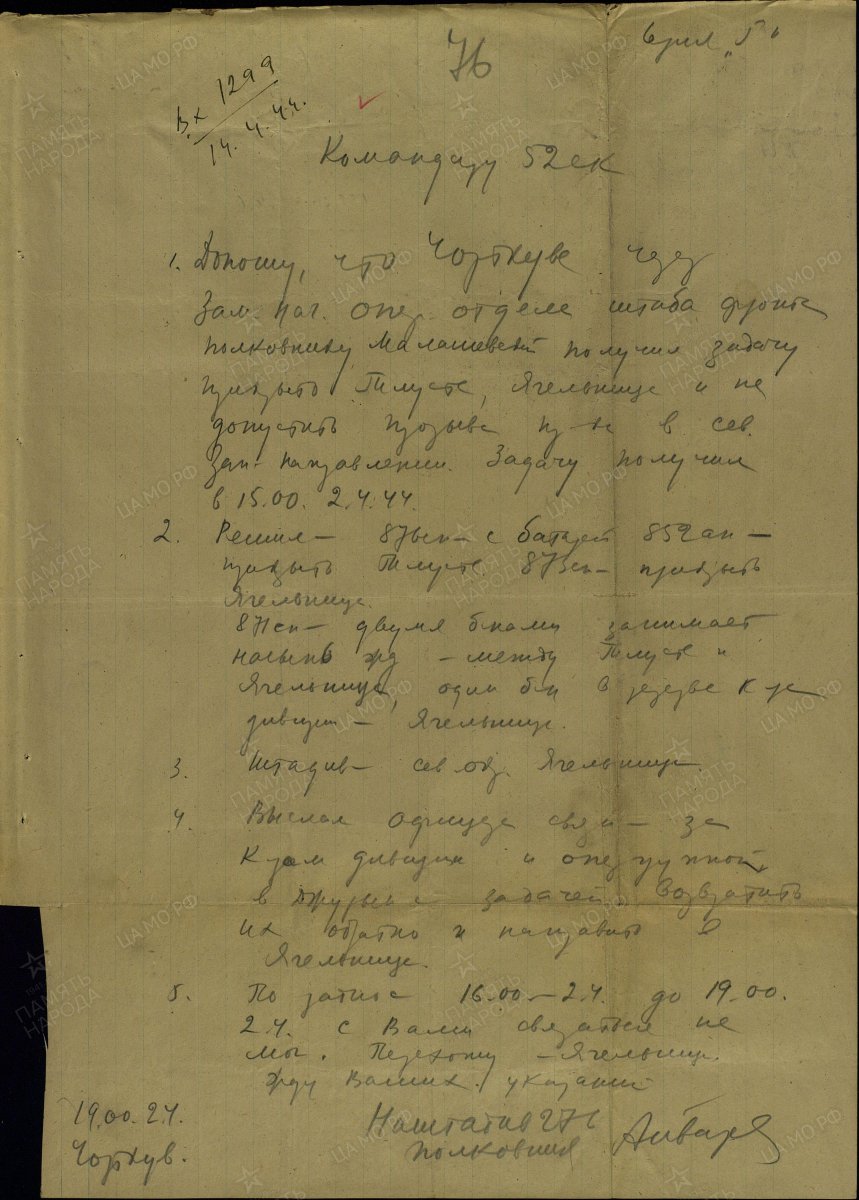 76
Серия "Г"
Вх 1299
14.4.44.
Командиру 52 ск
1. Доношу, что Чорткуве через
Зам. нач. опер. отдела штаба фронта
полковнику Малашевский получил задачу
прикрыть Тлусте, Ягельница и не
допустить прорыва пр-ка в сев.
зап. направлении. Задачу получил
в 15.00. 2.4.44.
2. Решил - 876сп - с батареей 852 ап -
прикрыть Тлусте. 873сп - прикрыть
Ягельница.
871сп - двумя б-нами занимает
насыпь жд - между Тлусте и
Ягельница, один б-н в резерве к-ра
дивизии - Ягельница.
3. Штадив - сев. окр. Ягельница.
4. Выслал офицера связи - за
к-ром дивизии и опергруппой
в с задачей возвратить
их обратно и направить в
Ягельница.
5. По рации с 16.00 - 2.4. до 19.00.
2.4. с Вами связаться не
мог. Перехожу - Ягельница.
Жду Ваших указаний
19.00. 2.4.
Чорткув.
Наштадив 276
полковник